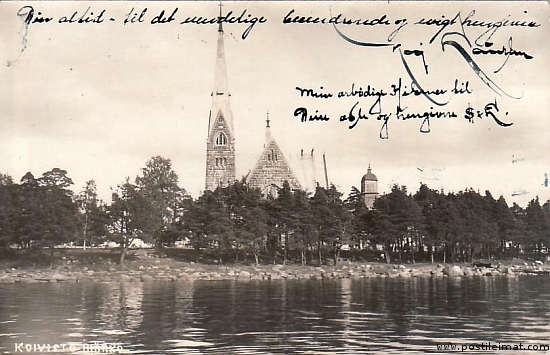 Din altid - til det uendelige beundrende og evigt hengivne
Kaj
Min ærbødige Hilsener til
Dine og hengivne
KOIVISTO KIRKKO
www.postileimat.com